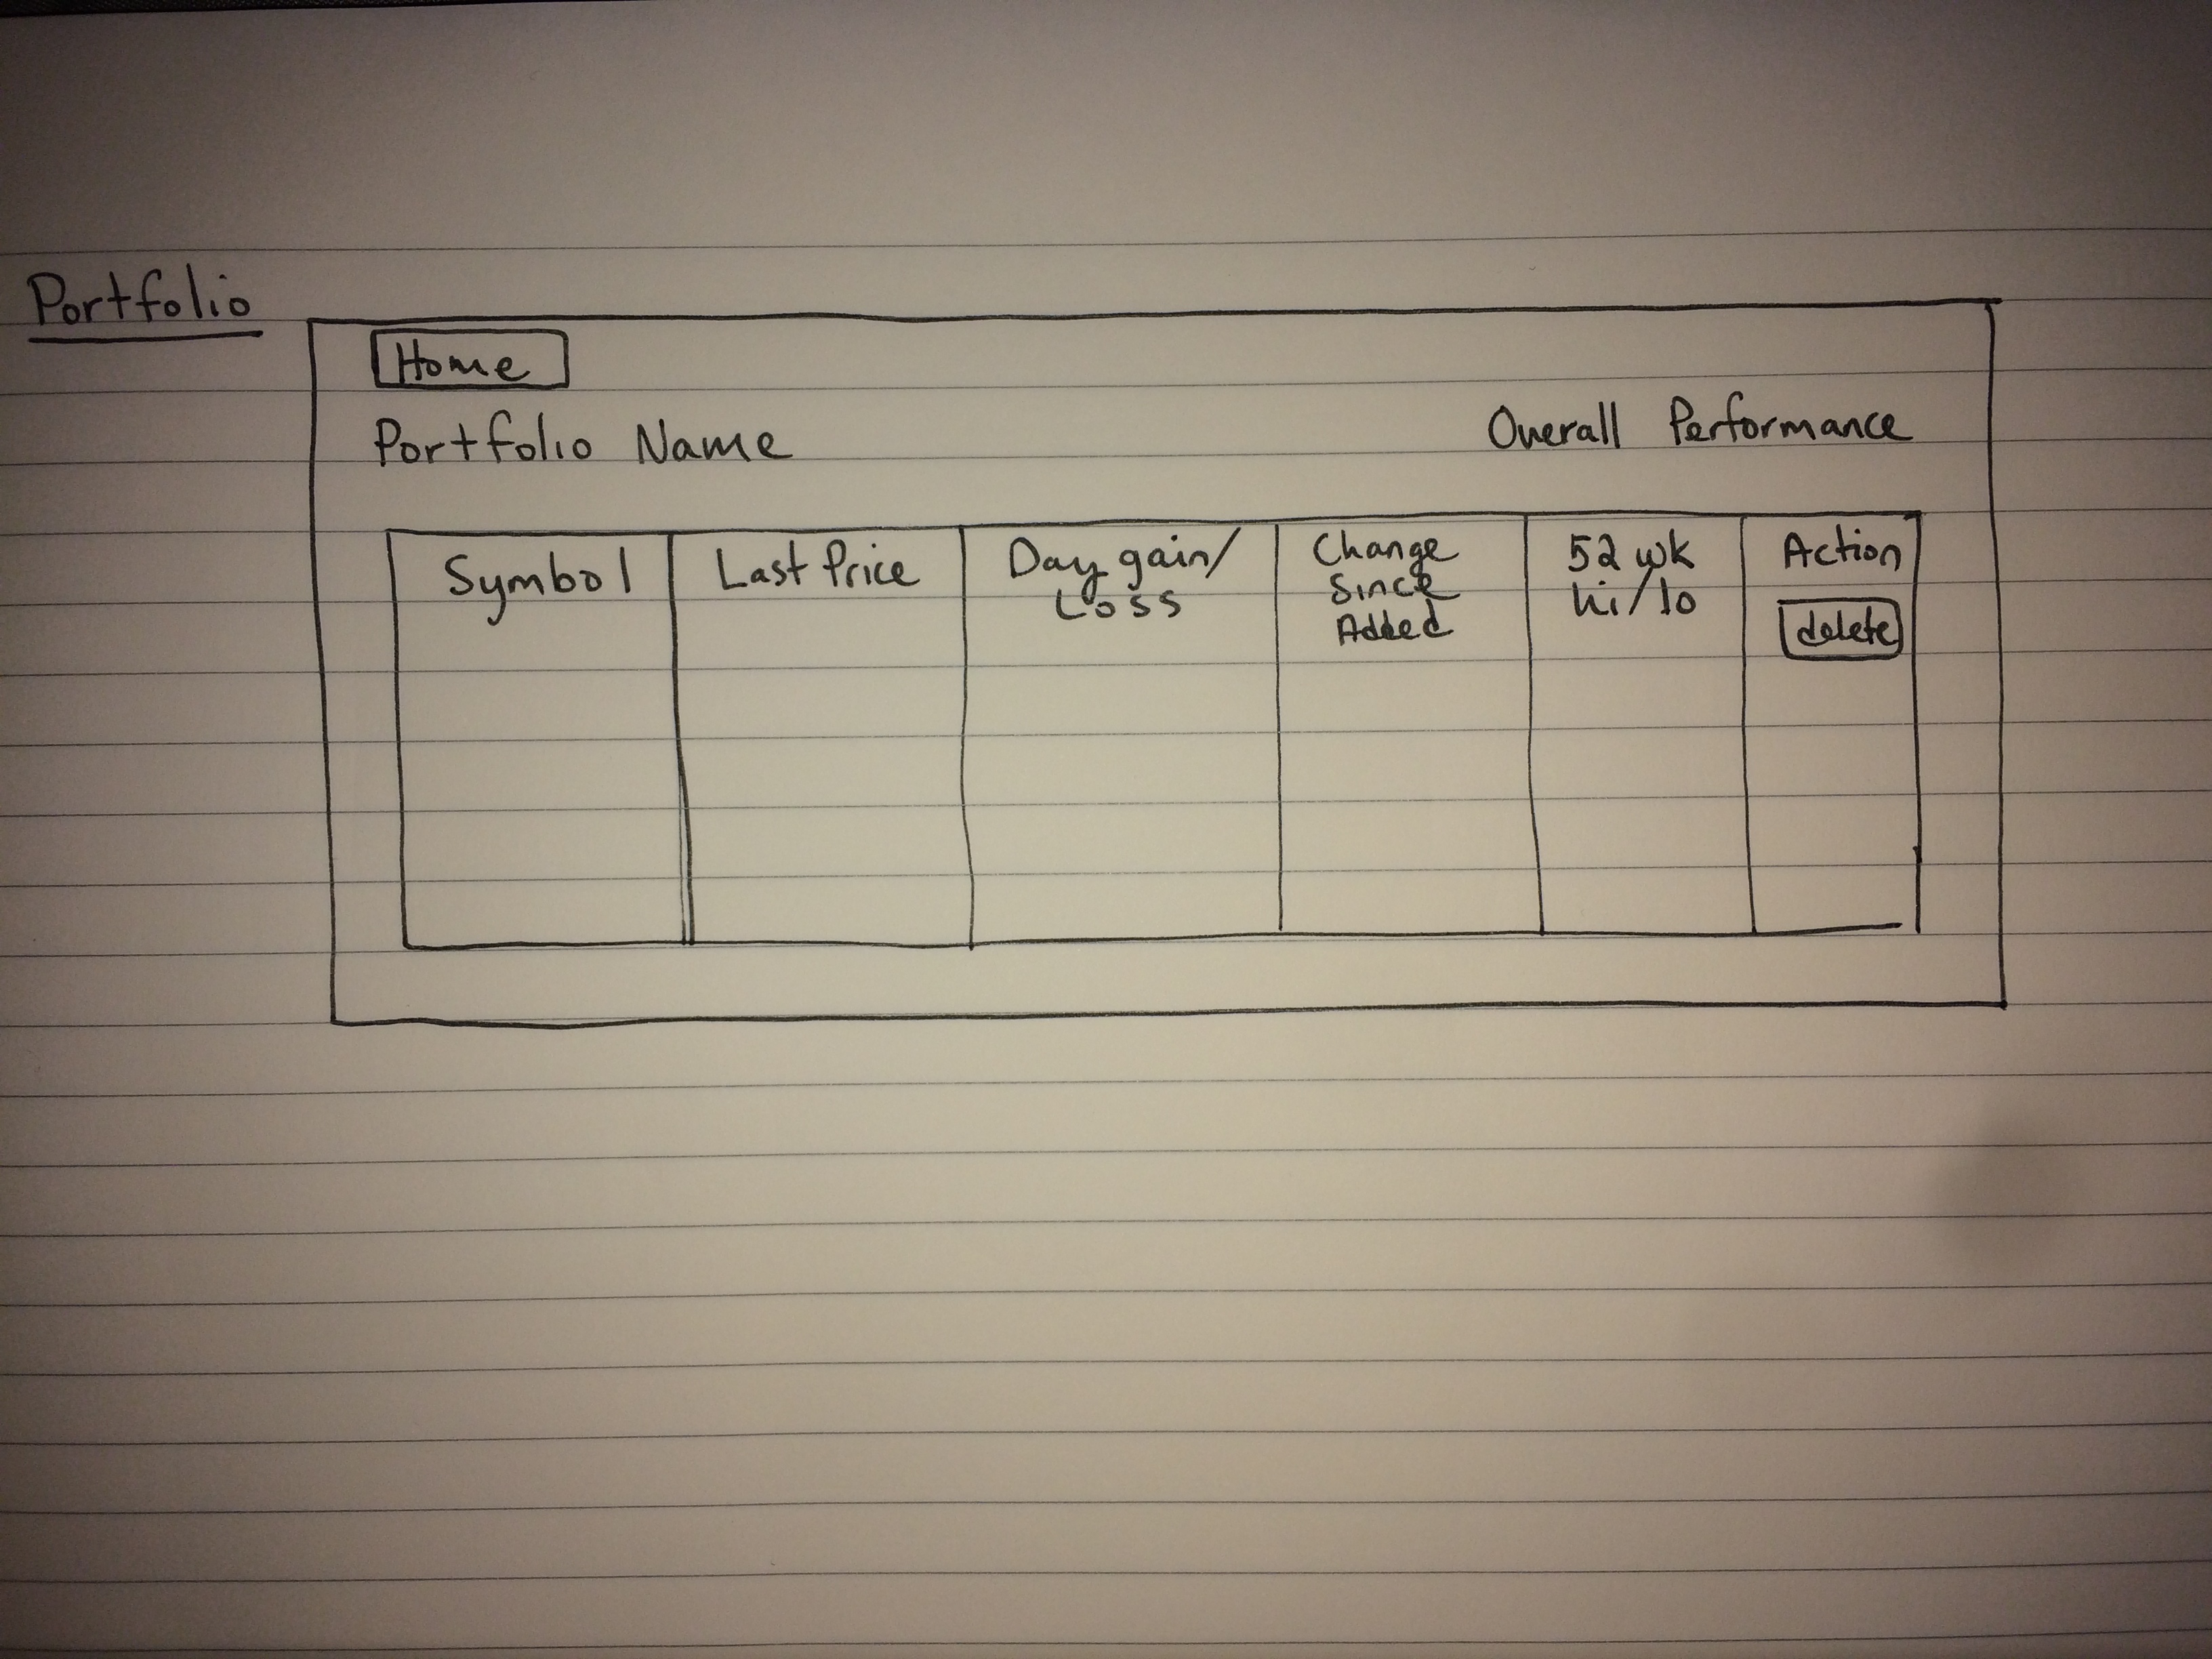 Portfolio
Home
Portfolio Name
Overall Performance
Symbol
Last Price
Day gain/
Loss
Change
Since
Added
52 wk
hi/lo
Action
delete